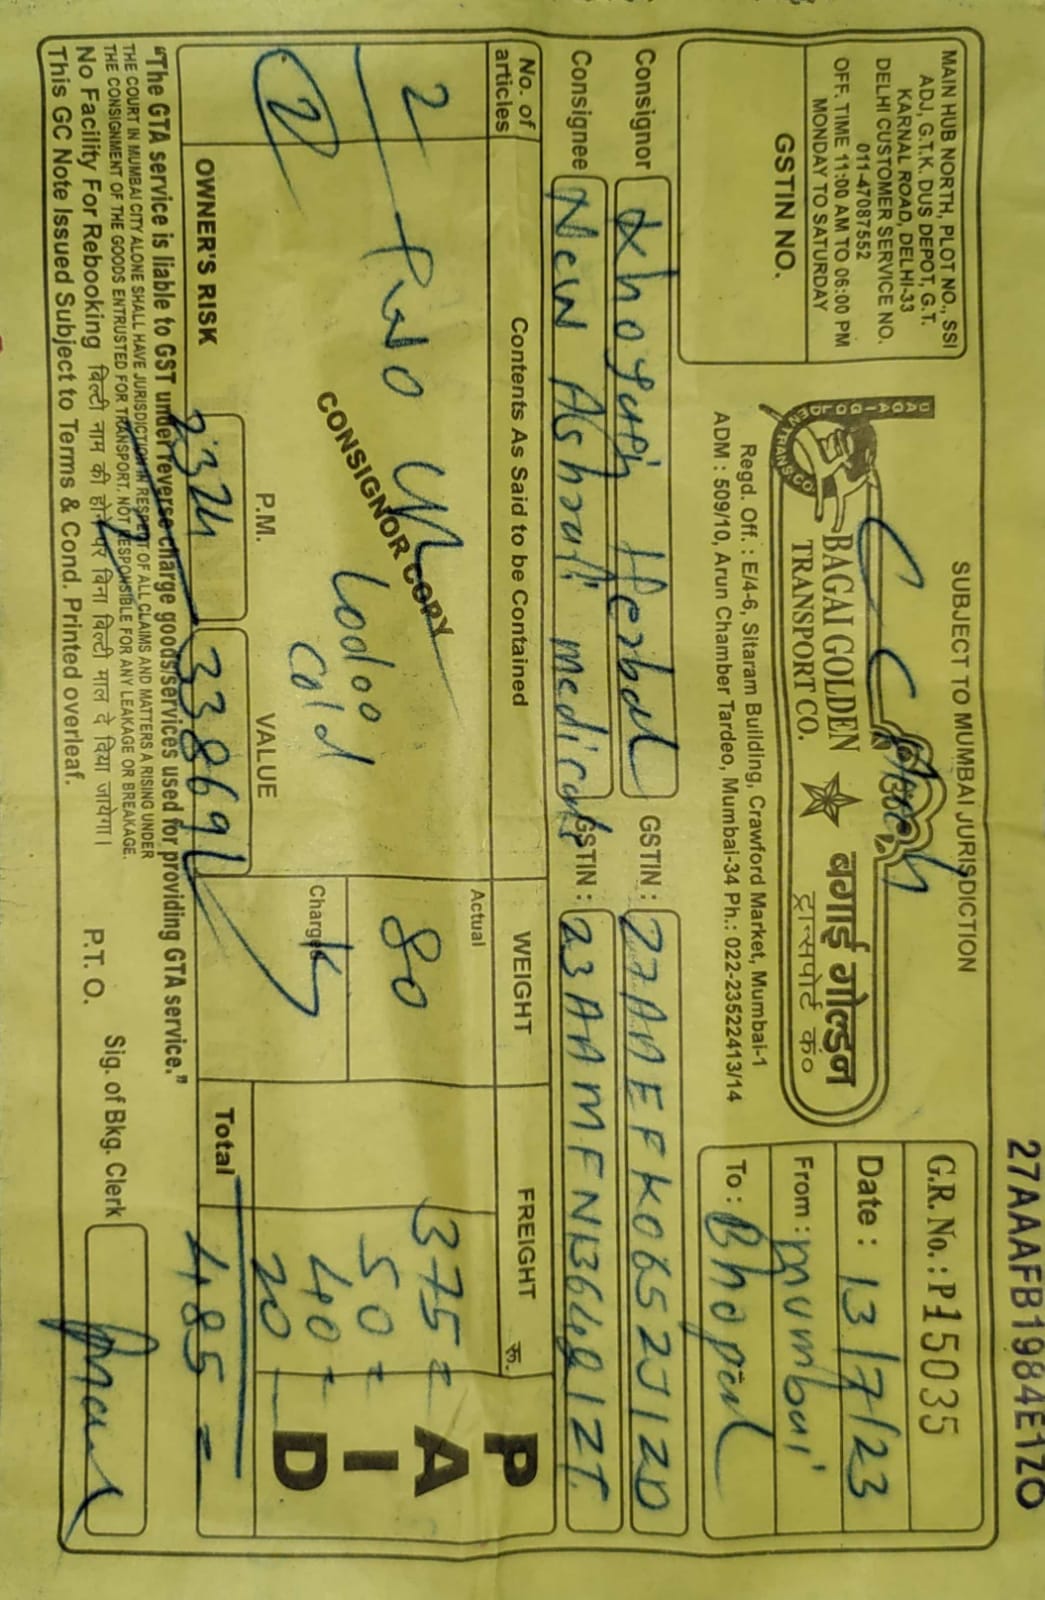 27AAAFB1984E1ZO
SUBJECT TO MUMBAI JURISDICTION
MAIN HUB NORTH, PLOT NO., SSI
ADJ, G.T.K. DUS DEPOT, G.T.
KARNAL ROAD, DELHI-33
DELHI CUSTOMER SERVICE NO.
011-47087552
OFF. TIME 11:00 AM TO 06:00 PM
MONDAY TO SATURDAY
GSTIN NO.
BAGAI GOLDEN
TRANSPORT CO.
बगाई गोल्डन
ट्रान्सपोर्ट कं०
Regd. Off. : E/4-6, Sitaram Building, Crawford Market, Mumbai-1
ADM : 509/10, Arun Chamber Tardeo, Mumbai-34 Ph.: 022-23522413/14
G.R. No.: P15035
Date : 13/7/23
From : mumbai
To : Bhopal
Consignor Herbal GSTIN : 27AAEFK0652J1ZD
Consignee New Ashrafi medicals GSTIN :
No. of articles Contents As Said to be Contained WEIGHT FREIGHT रू.
2 Two Actual 80 375=
CONSIGNOR COPY
50=
Charged 40=
cold 20
2
P.M. VALUE
OWNER'S RISK 33869 Total 485=
PAID
"The GTA service is liable to GST under reverse charge goods/services used for providing GTA service."
THE COURT IN MUMBAI CITY ALONE SHALL HAVE JURISDICTION IN RESPECT OF ALL CLAIMS AND MATTERS A RISING UNDER
THE CONSIGNMENT OF THE GOODS ENTRUSTED FOR TRANSPORT, NOT RESPONSIBLE FOR ANY LEAKAGE OR BREAKAGE.
No Facility For Rebooking बिल्टी नाम की होने पर बिना बिल्टी माल दे दिया जायेगा।
P.T.O. Sig. of Bkg. Clerk
This GC Note Issued Subject to Terms & Cond. Printed overleaf.